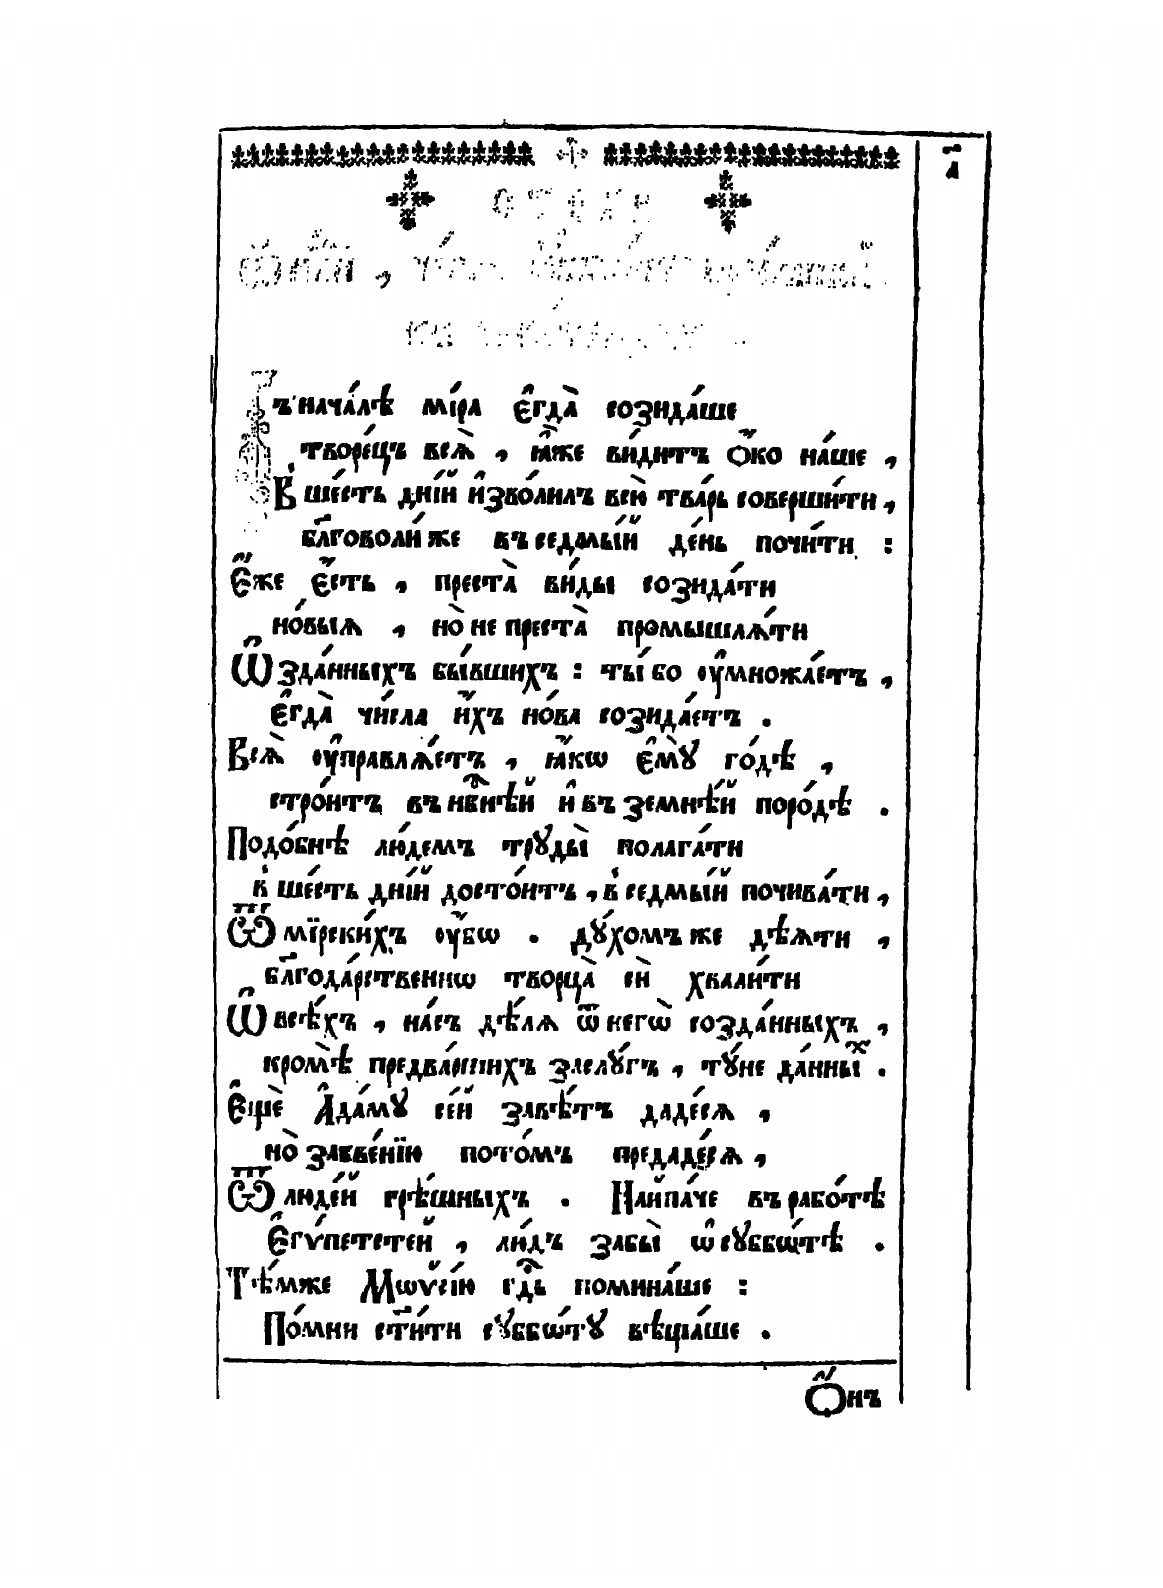 а҃
Въ нача́лѣ мі́ра є҆гда̀ созида́ше
творе́цъ всѧ̀, ꙗ҆́же ви́дитъ ѻ҆́ко на́ше,
В ше́сть дні́й и҆зво́лилъ всю̀ тва́рь соверши́ти,
бл҃говоли́ же въ седмы́й де́нь почи́ти:
Є҆́же є҆́сть, преста̀ ви́ды созида́ти
но́выѧ, но̀ не преста̀ промышлѧ́ти
Ѽ зда́нныхъ бы́вшихъ: ты́ бо ᲂу҆множа́етъ,
є҆гда̀ чи́сла и҆́хъ но́ва созида́етъ.
Всѧ̀ ᲂу҆правлѧ́етъ, ꙗ҆́кѡ є҆мꙋ̀ го́дѣ,
стро́итъ въ нб҃нѣй и҆ въ земнѣ́й поро́дѣ.
Подо́бнѣ лю́демъ трꙋды̀ полага́ти
в ше́сть дні́й досто́итъ, в седмы́й почива́ти,
Ѿ мїрски́хъ ᲂу҆́бѡ. дꙋ́хомъ же дѣ́ѧти,
бл҃года́рственнѡ творца̀ си̂ хвали́ти
Ѽ всѣ́хъ, на́съ дѣ́лѧ ѿ негѡ̀ созда́нныхъ,
кромѣ̀ предва́ршихъ заслꙋ́гъ, тꙋ́не да́нныⷯ.
Є҆щѐ А҆да́мꙋ се́й завѣ́тъ даде́сѧ,
но̀ забве́нїю пото́мъ предаде́сѧ,
Ѿ люде́й грѣ́шныхъ. Наипа́че въ рабо́тѣ
є҆гѵ́петстей, лю́дъ забы̀ ѽ сꙋббѡ́тѣ.
Тѣ́мже Мѡѷсі́ю гдⷭ҇ь помина́ше:
По́мни ст҃и́ти сꙋббѡ́тꙋ вѣща́ше.
Ѻ҆́нъ